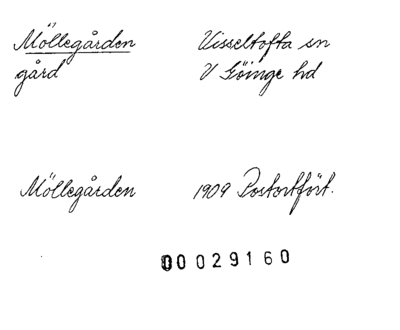 Möllegården Visseltofta sn
gård V Göinge hd
Möllegården 1909 Postortfört.
00029160